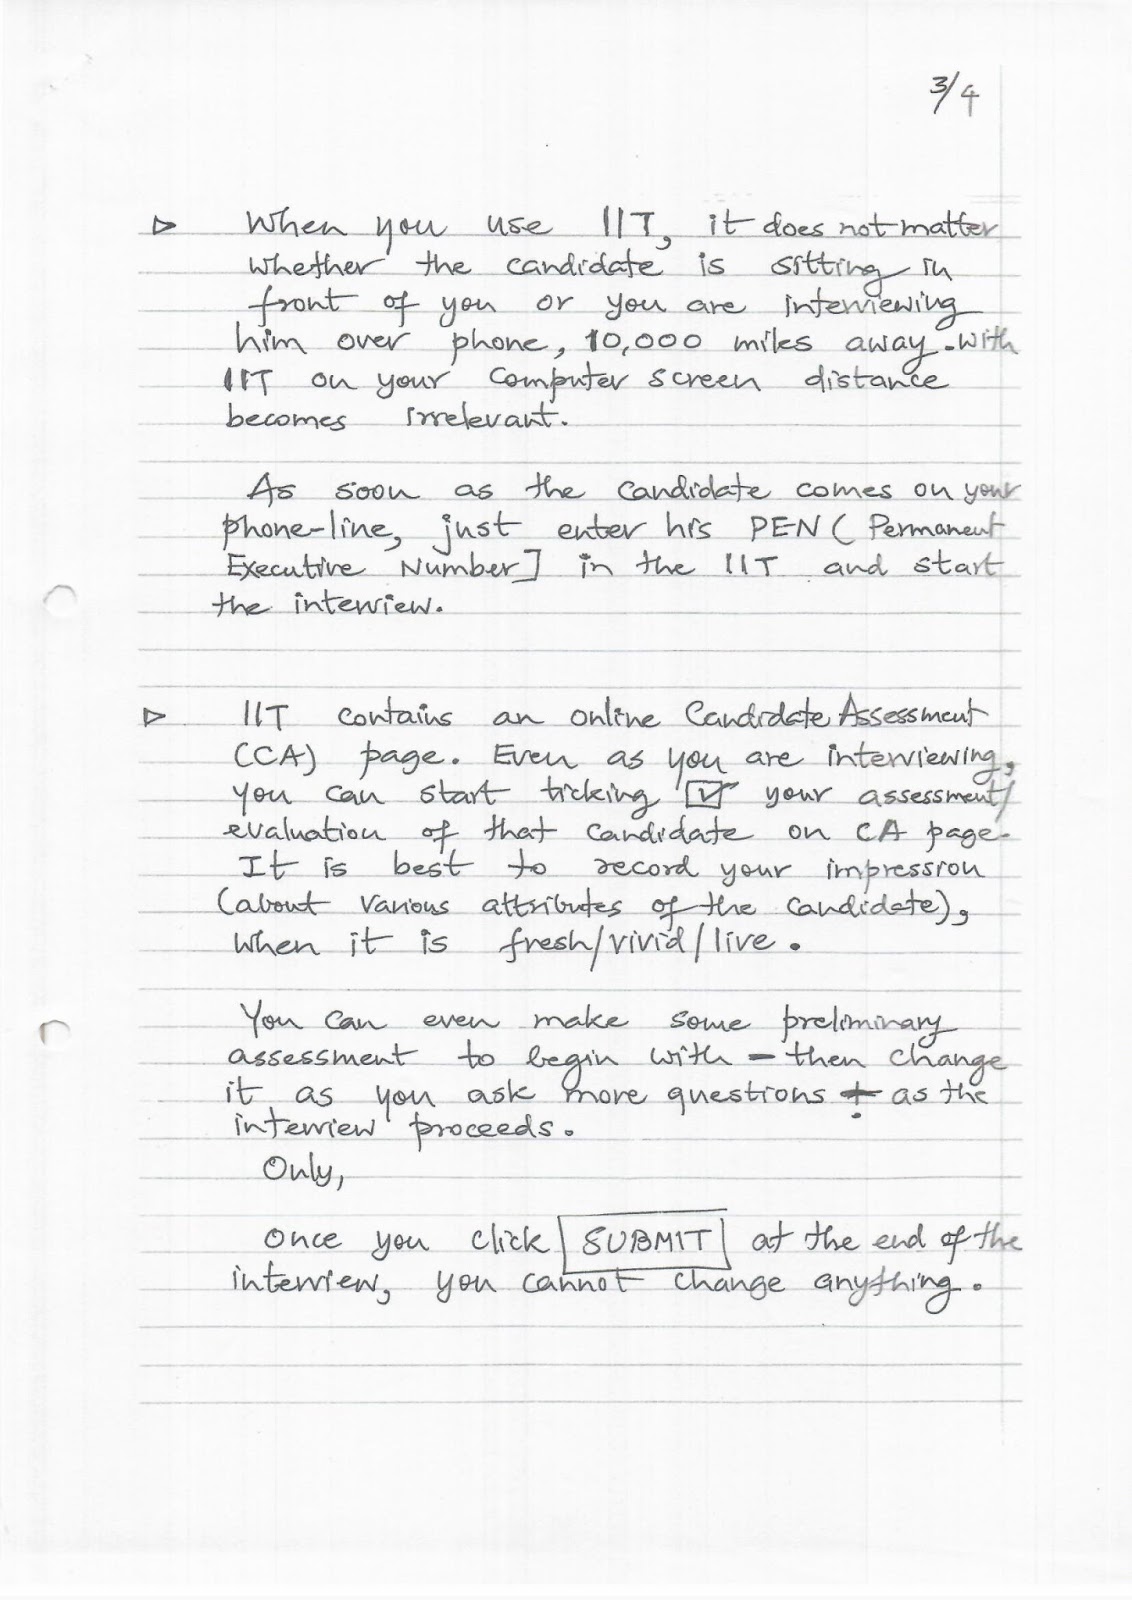 3/4
▷ When you use IIT, it does not matter
whether the candidate is sitting in
front of you or you are interviewing
him over phone, 10,000 miles away. With
IIT on your computer screen distance
becomes irrelevant.
As soon as the candidate comes on your
phone-line, just enter his PEN (Permanent
Executive Number] in the IIT and start
the interview.
▷ IIT contains an online Candidate Assessment
(CA) page. Even as you are interviewing,
you can start ticking ☑ your assessment/
evaluation of that candidate on CA page.
It is best to record your impression
(about various attributes of the candidate),
when it is fresh/vivid/live.
You can even make some preliminary
assessment to begin with - then change
it as you ask more questions + as the
interview proceeds.
Only,
Once you click SUBMIT at the end of the
interview, you cannot change anything.